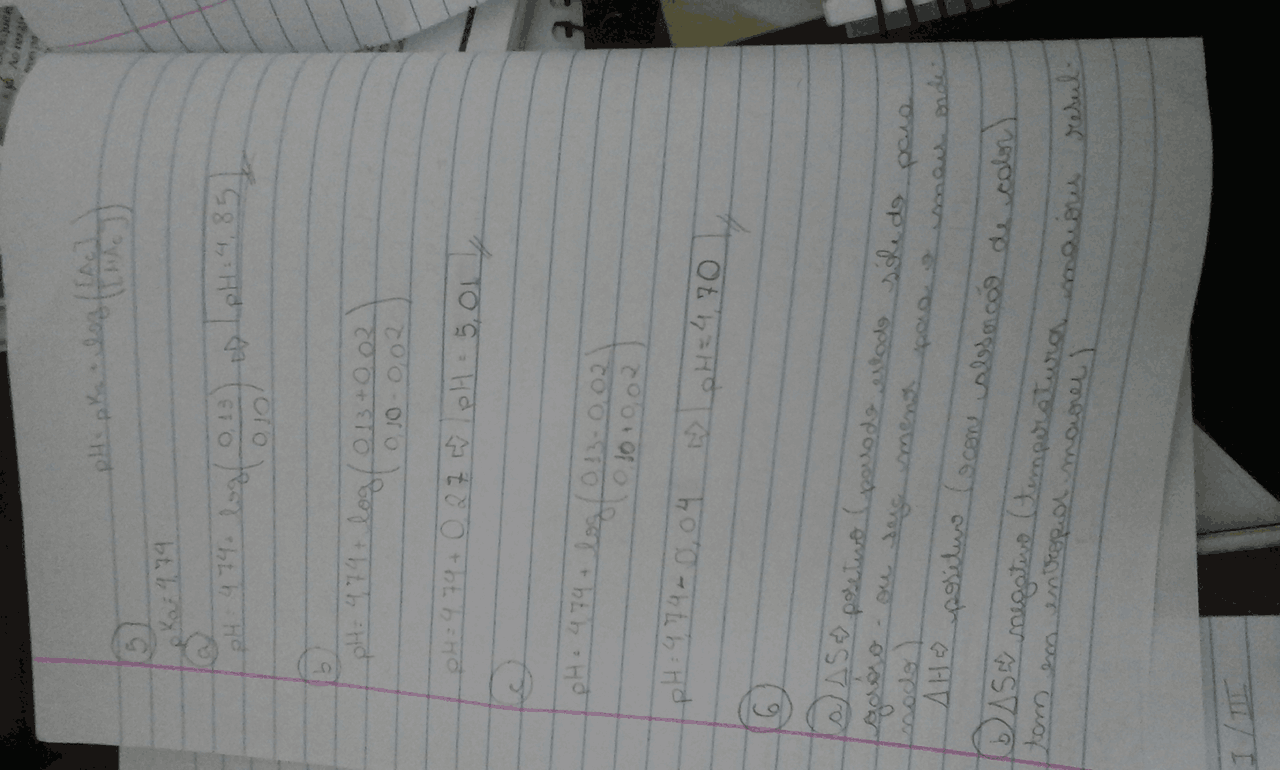 5) pH = pKa + log([Ac]/[HAc])
pKa = 4,74
a)
pH = 4,74 + log(0,13/0,10) ⇒ pH = 4,85
b)
pH = 4,74 + log(0,13+0,02/0,10-0,02)
pH = 4,74 + 0,27 ⇒ pH = 5,01
c)
pH = 4,74 + log(0,13-0,02/0,10+0,02)
pH = 4,74 - 0,04 ⇒ pH = 4,70
6
a) ΔS ⇒ positivo (passado estado sólido para
gasoso - ou seja menos para o mais ordi-
nado)
ΔH ⇒ positivo (ocorre absorção de calor)
b) ΔS ⇒ negativo (temperaturas maiores resul-
tam em entropias maiores)
I / III